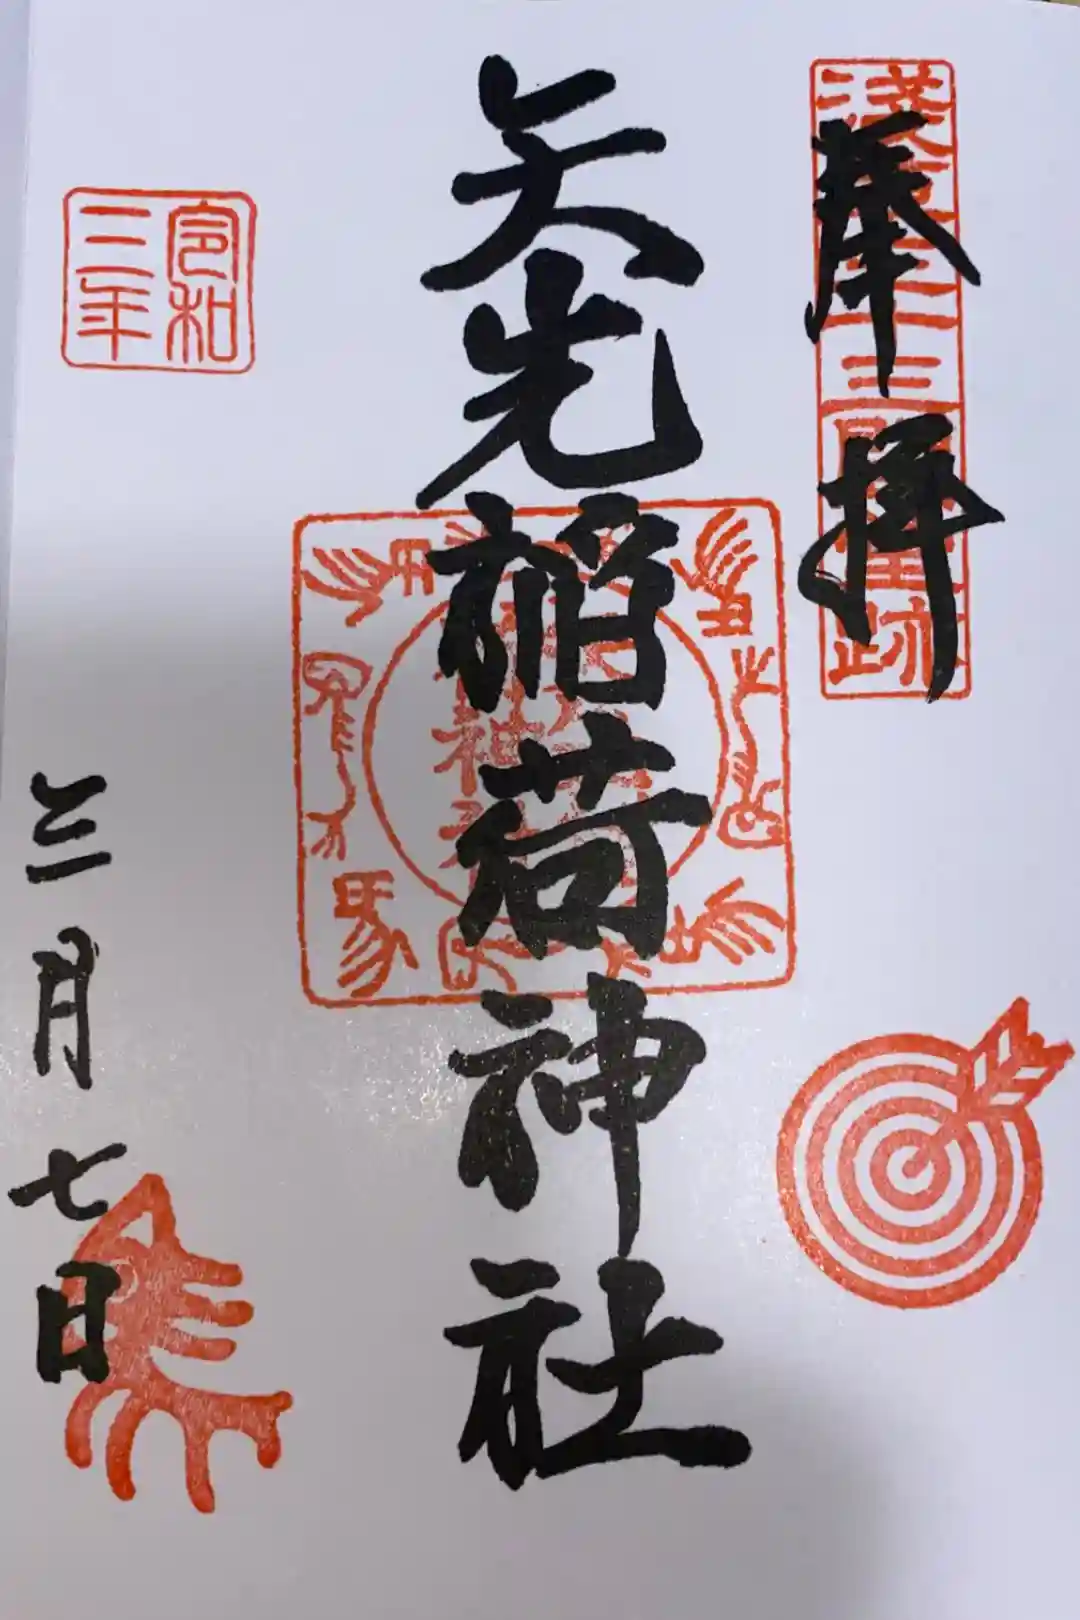 淺草三十三間堂跡
奉拝
矢先稲荷神社
令和
三年
三月七日
馬